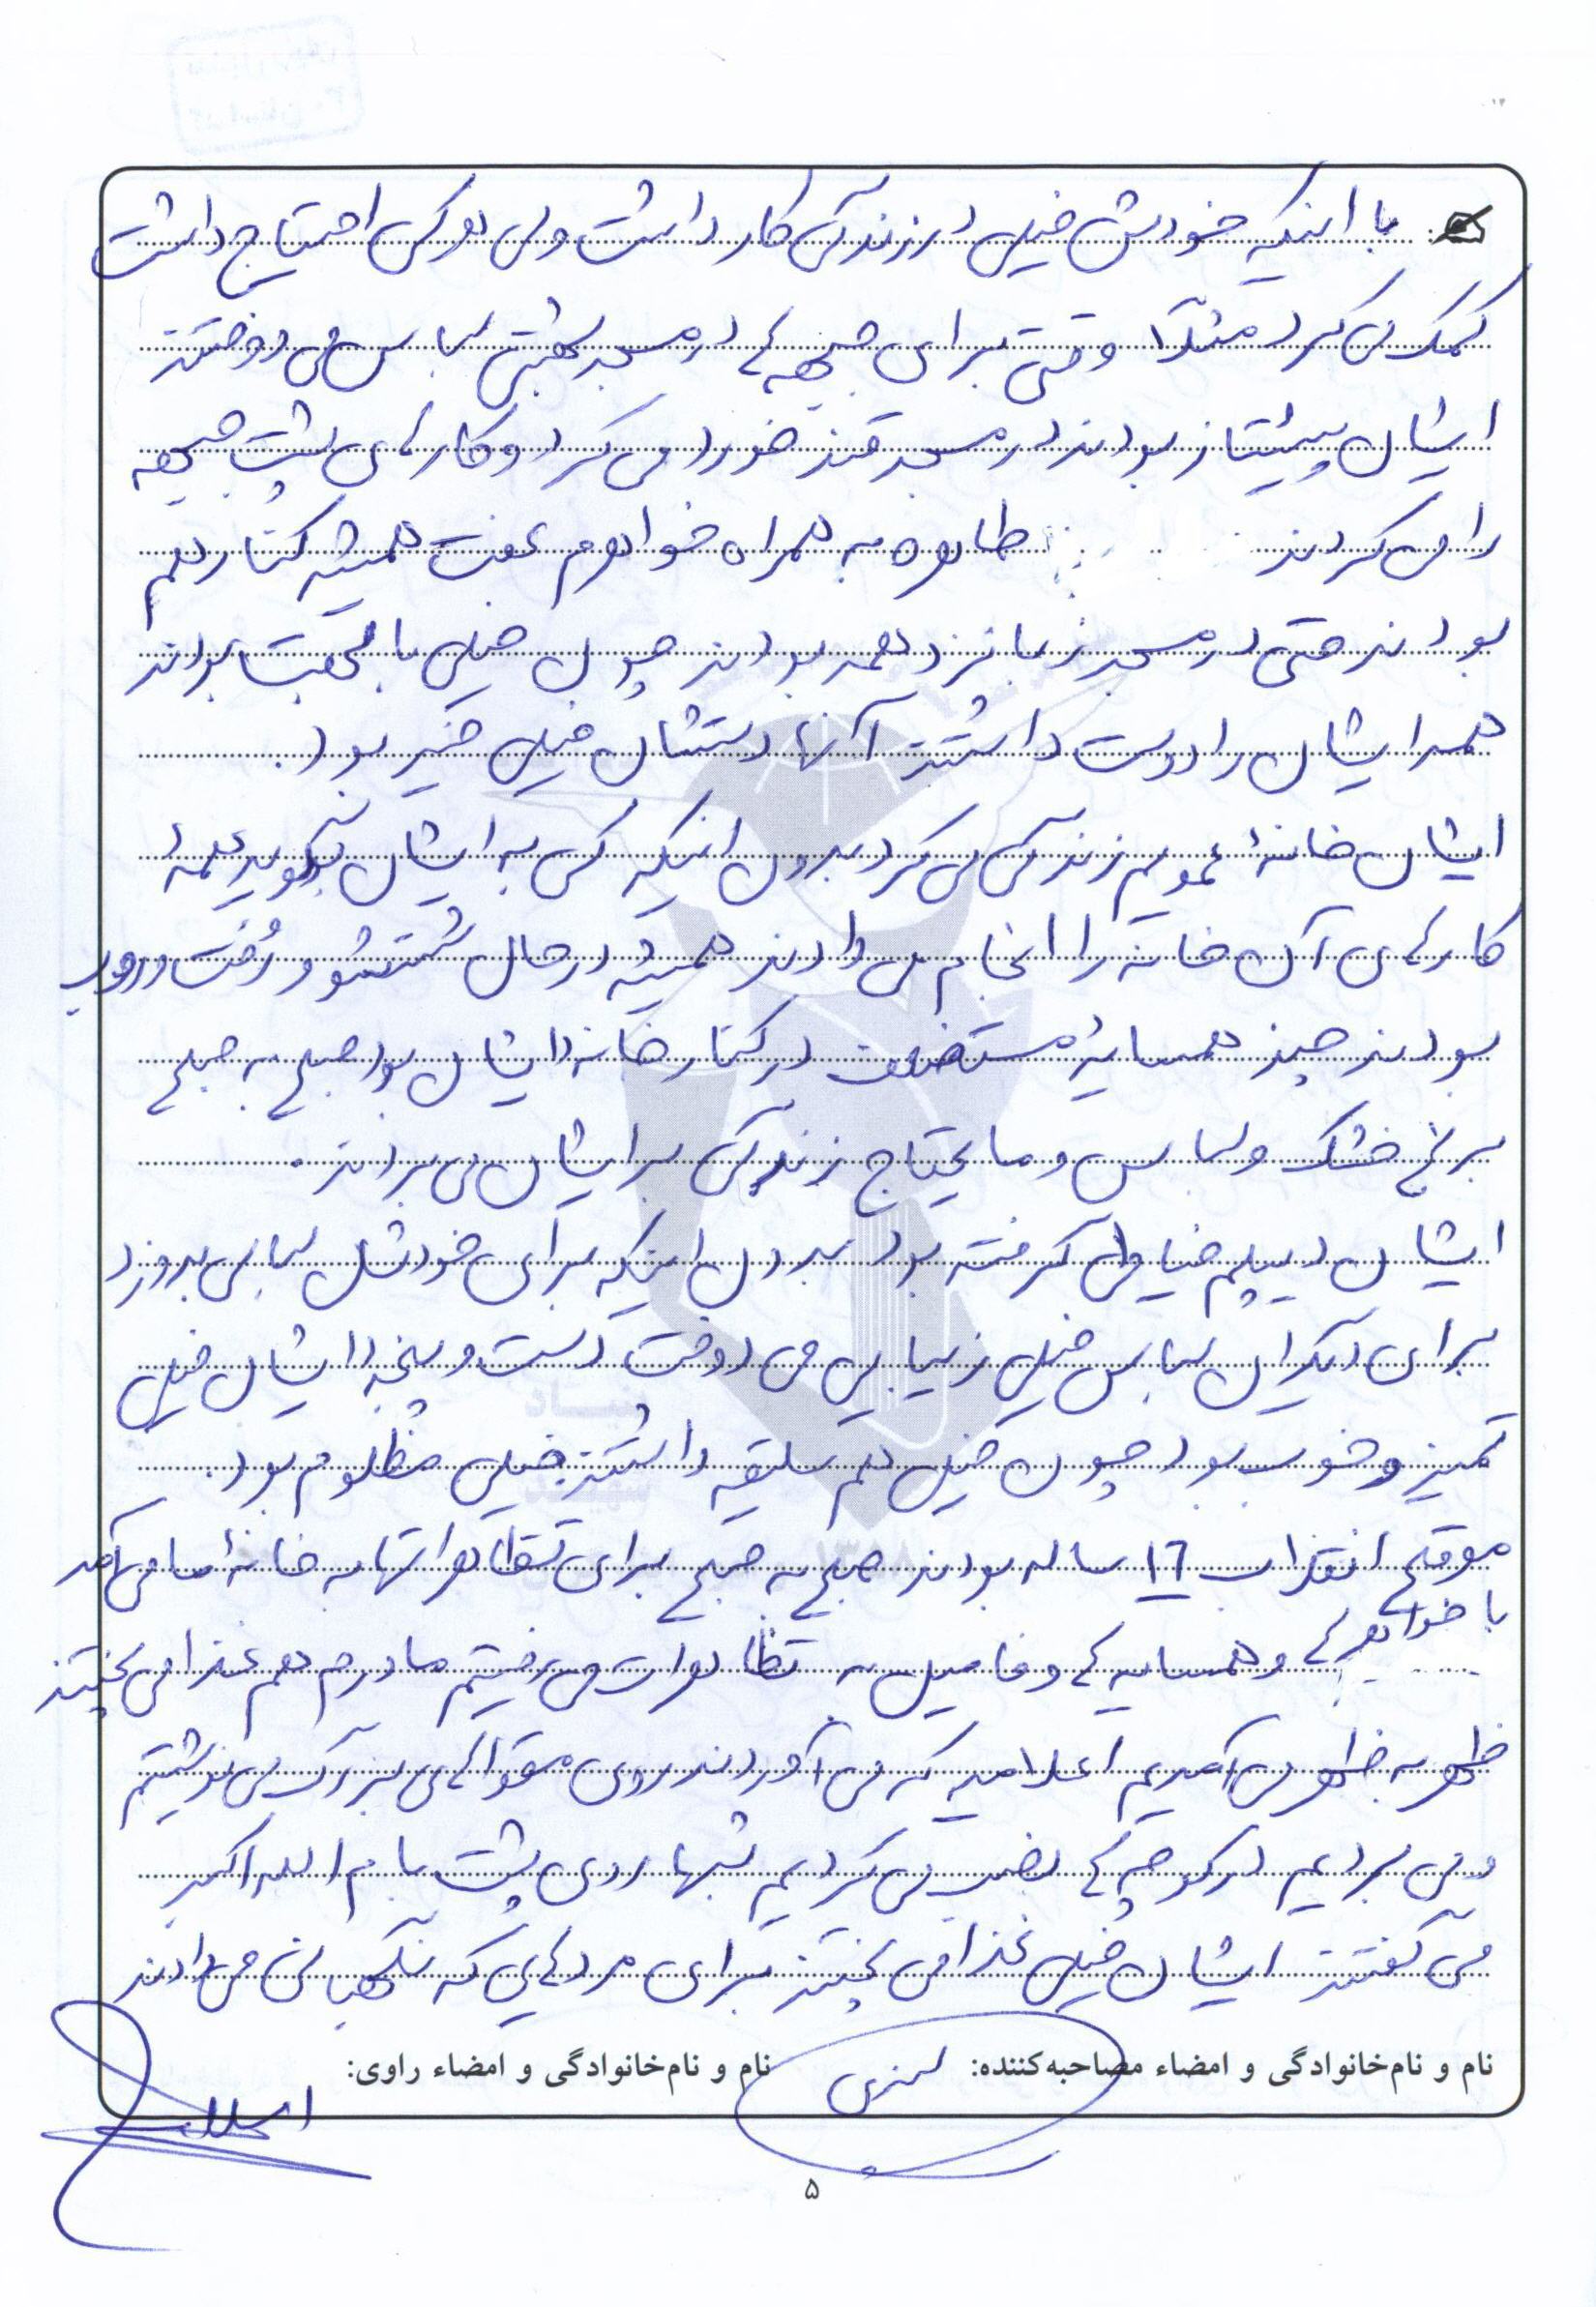 با اینکه خودش خیلی در زندگی کار داشت ولی هر کسی احتیاج داشت
کمک می کرد مثلاً وقتی برای جبهه ها در مسجد لباس می دوختند
ایشان پیشتاز بودند در مسجد قند خورد می کرد و کارهای پشت جبهه
را می کردند طاهره به همراه خواهرم عفت همیشه کنار هم
بودند حتی در مسجد زبانزد همه بودند چون خیلی با محبت بودند
همه ایشان را دوست داشتند آنها دستشان خیلی خیر بود.
ایشان خانهٔ عمویم زندگی می کرد بدون اینکه کسی به ایشان بگوید همهٔ
کارهای آن خانه را انجام می دادند همیشه در حال شستشو و رُفت و روب
بودند چند همسایهٔ مستضعف در کنار خانه ایشان بود صبح به صبح
برنج خشک و لباس و مایحتاج زندگی برایشان می بردند.
ایشان دیپلم خیاطی گرفته بود بدون اینکه برای خودشان لباسی بدوزد
برای دیگران لباس خیلی زیبایی می دوخت دست و پنجه ایشان خیلی
تمیز و خوب بود چون خیلی هم سلیقه داشتند خیلی مظلوم بود.
موقع انقلاب ۱۶ ساله بودند صبح به صبح برای تظاهراتها به خانهٔ ما می آمد
با خواهر ها و همسایه ها و فامیل به تظاهرات می رفتیم مادرم هم غذا می پختند
ظهر به ظهر می آمدیم اعلامیه که می آوردند روی مقواهای بزرگ می نوشتیم
و می بردیم در کوچه ها نصب می کردیم شبها روی پشت بام الله اکبر
می گفتند ایشان خیلی غذا می پختند برای مردهایی که نگهبانی می دادند
نام و نام‌خانوادگی و امضاء مصاحبه‌کننده: نام و نام‌خانوادگی و امضاء راوی:
۵